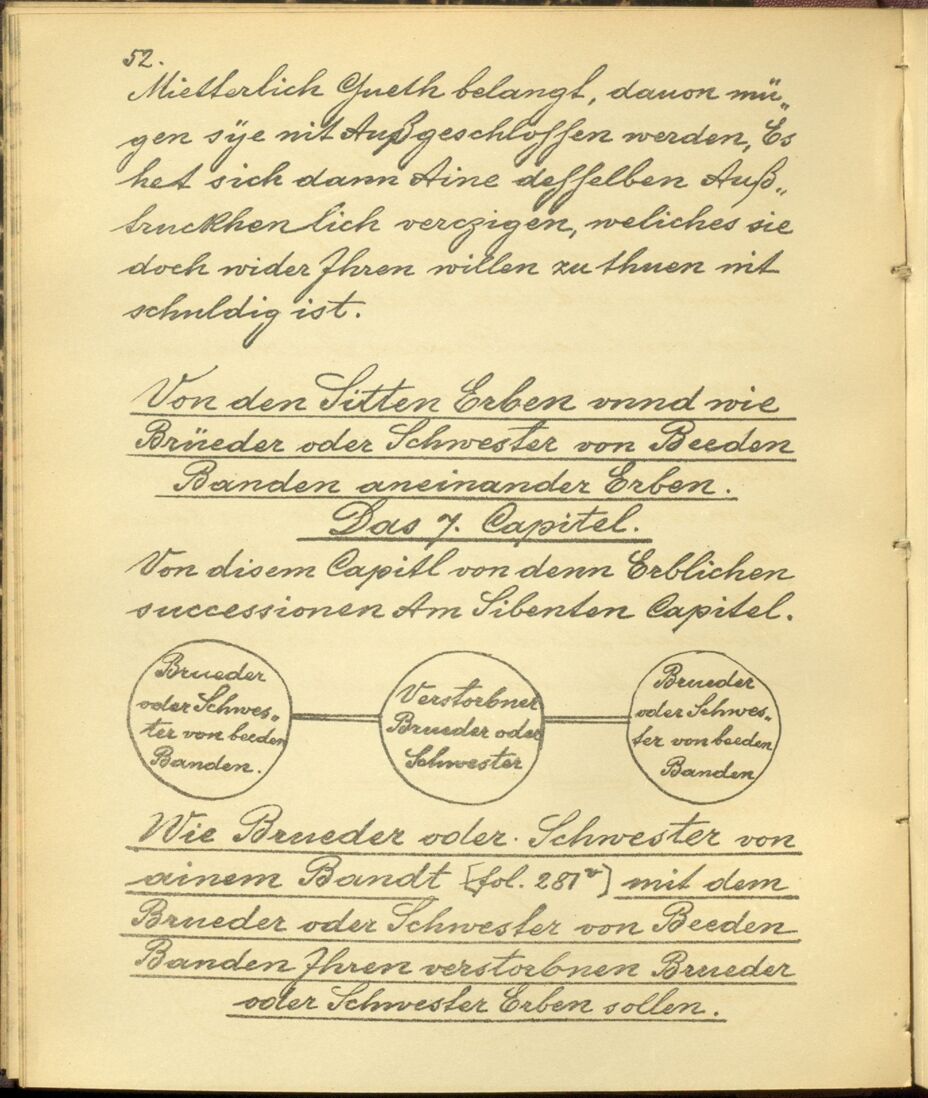 52.
Mietterlich Gueth belangt, dauon mü„
gen sÿe nit Außgeschlossen werden, Es
het sich dann Aine desselben Auß„
truckhenlich verczigen, weliches sie
doch wider Jhren willen zu thuen nit
schuldig ist.
Von den Sitten Erben vnnd wie
Brüeder oder Schwester von Beeden
Banden aneinander Erben.
Das 7. Capitel.
Von disem Capitl von denn Erblichen
successionen Am Sibenten Capitel.
Brueder
oder Schwes„
ter von beeden
Banden.
Verstorbner
Brueder oder
Schwester
Brueder
oder Schwes„
ter von beeden
Banden
Wie Brueder oder Schwester von
ainem Bandt [fol. 281v] mit dem
Brueder oder Schwester von Beeden
Banden Jhren verstorbnen Brueder
oder Schwester Erben sollen.